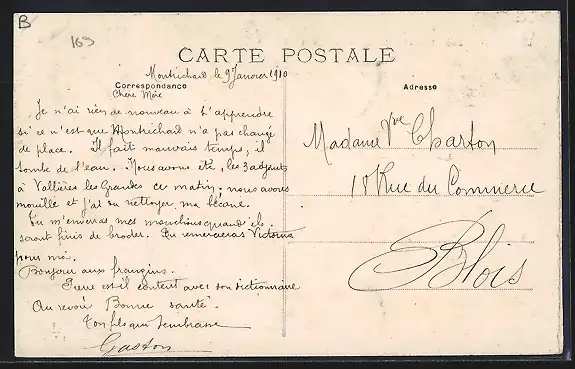 B
169
CARTE POSTALE
Montrichard le 9 Janvier 1910
Correspondance
Adresse
Chère Mère
Je n'ai rien de nouveau à t'apprendre
si ce n'est que Montrichard n'a pas changé
de place. Il fait mauvais temps, il
tombe de l'eau. Nous avons été, les 3 adjoints
à Vallières les Grandes ce matin, nous avons
mouillé et j'ai dû nettoyer ma bécane.
Tu m'enverras mes manchons quand ils
seront finis de broder. Tu remercieras Victorine
pour moi.
Bonjour aux frangins.
Pierre est-il content avec son dictionnaire
Au revoir Bonne santé
Ton fils qui t'embrasse
Gaston
Madame Vve Charton
18 Rue du Commerce
Blois